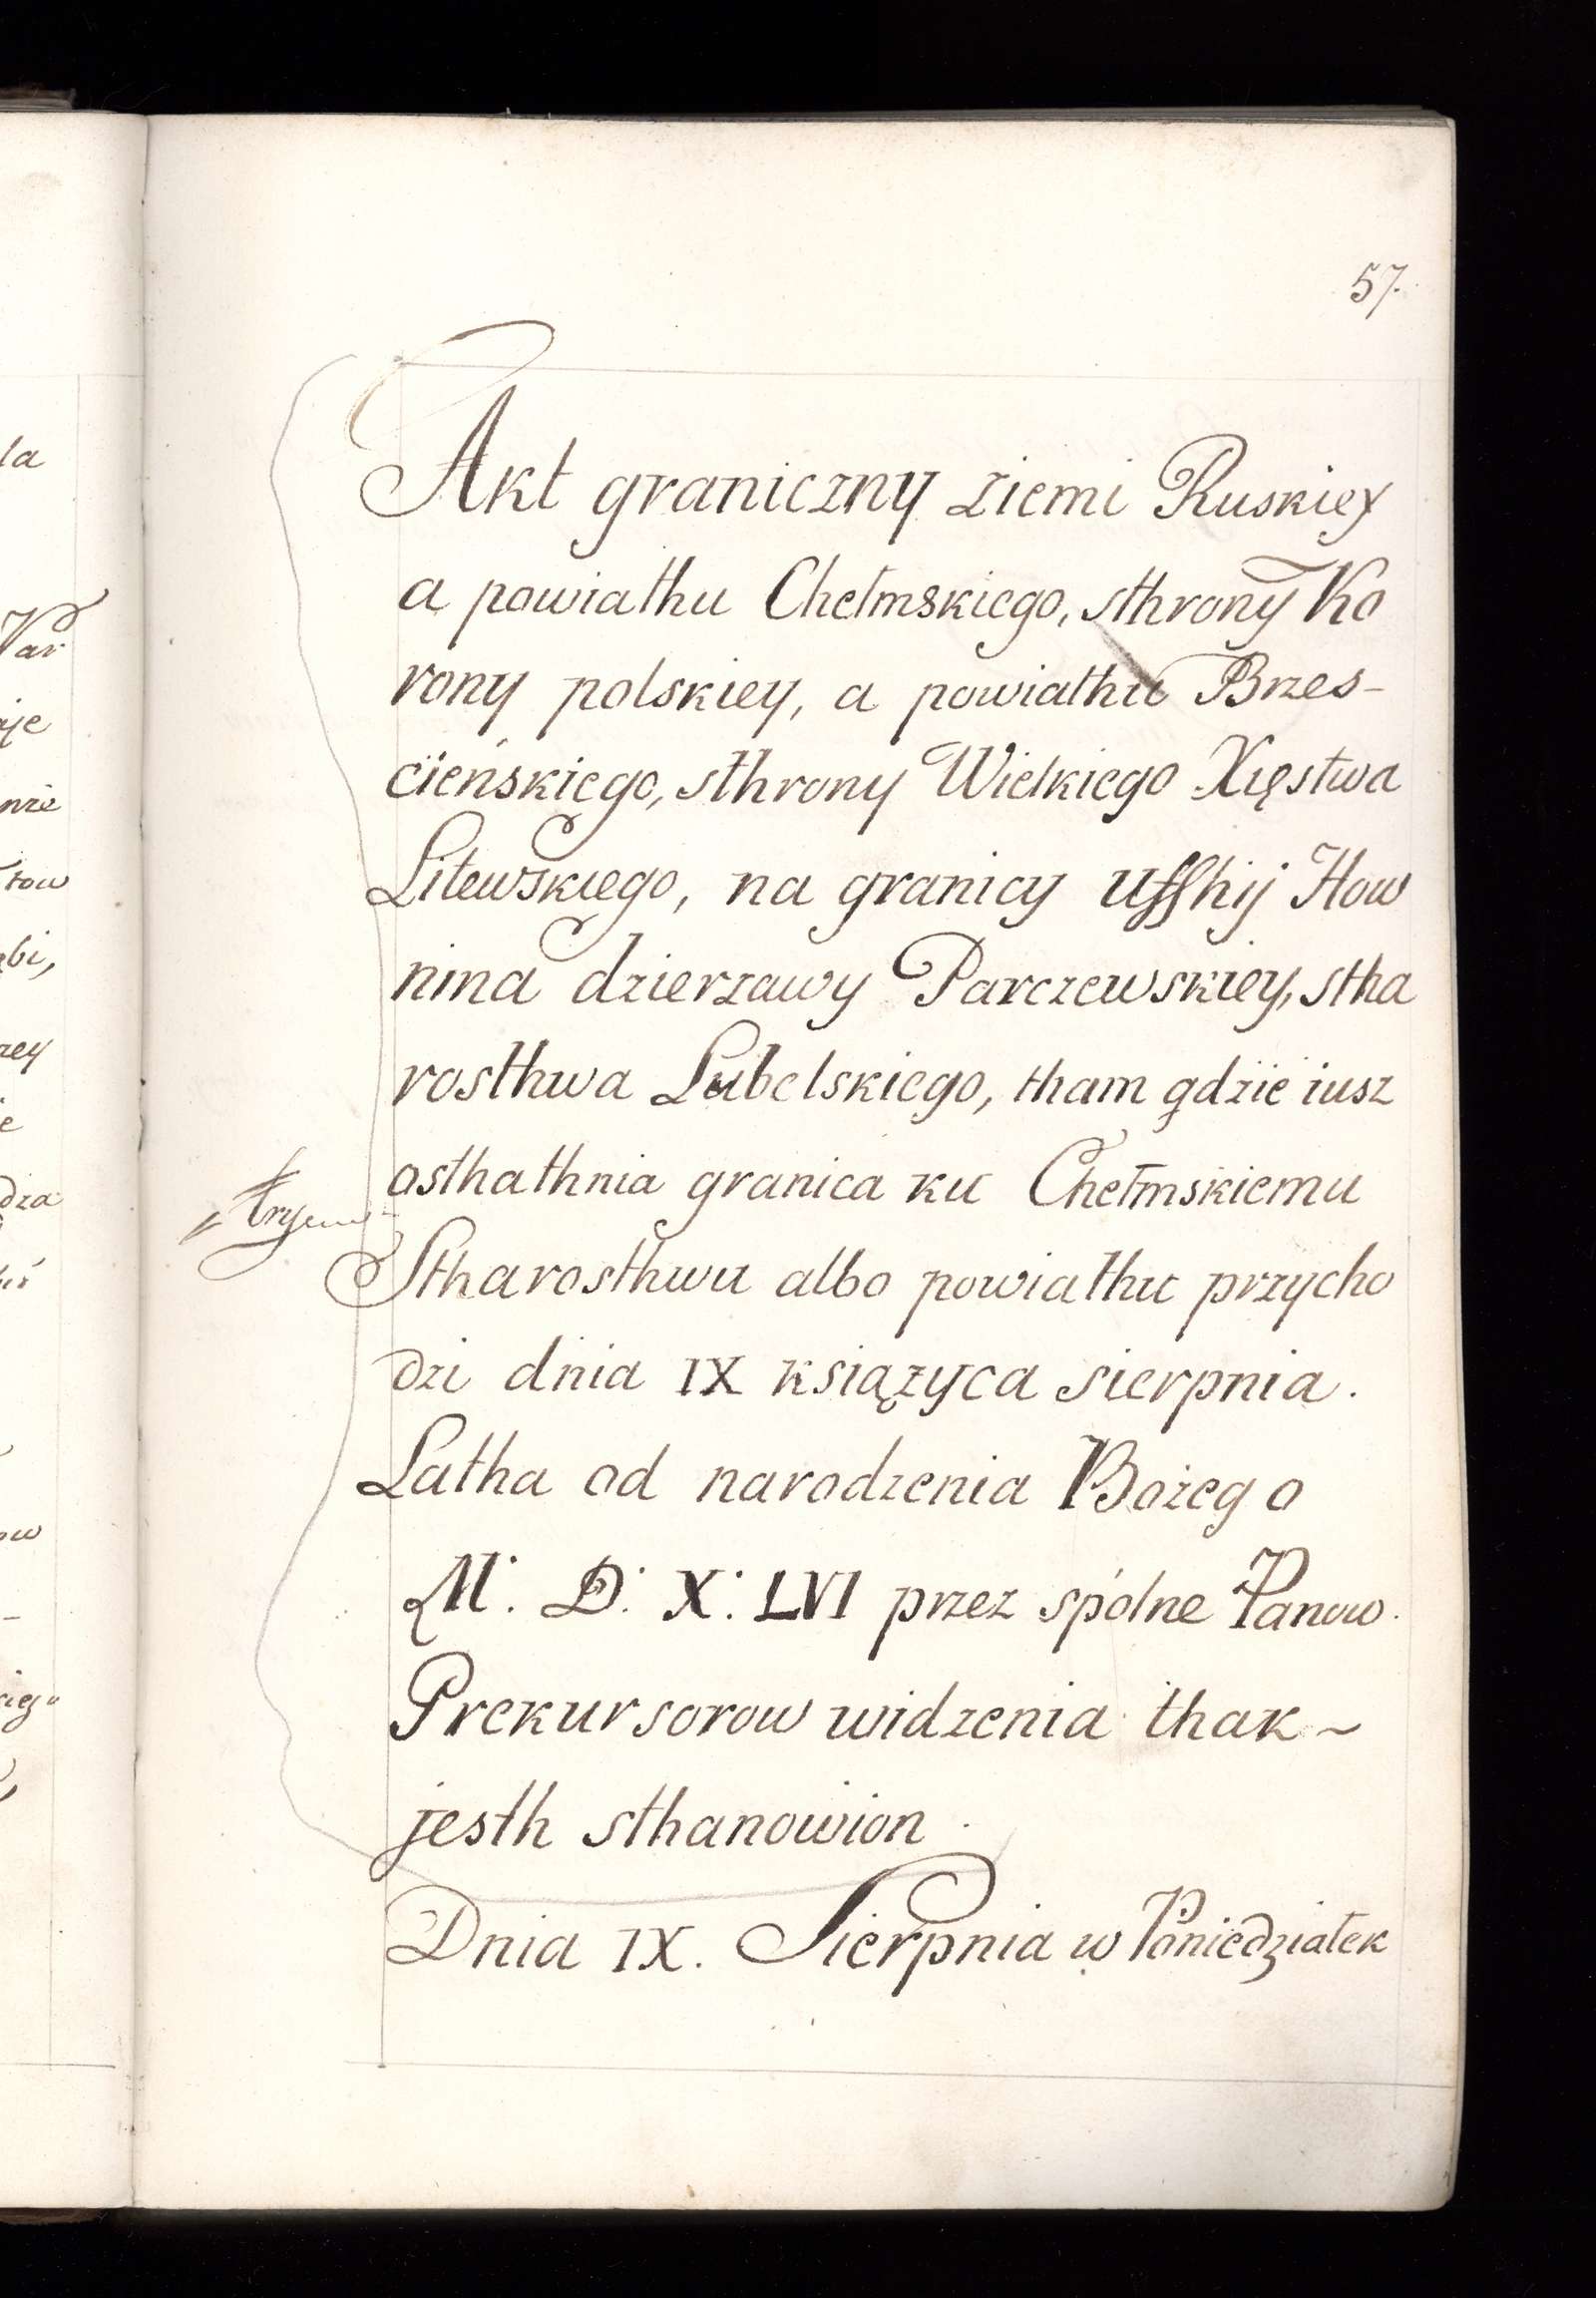 57.
Akt graniczny ziemi Ruskiey
a powiathu Chełmskiego, sthrony Ko
rony polskiey, a powiathu Brzes-
cieńskiego, sthrony Wielkiego Xięstwa
Litewskiego, na granicy Uffhij How
nina dzierzawy Parczewskiey, stha
rosthwa Lubelskiego, tham gdzie iusz
osthathnia granica ku Chełmskiemu
Stharosthwu albo powiathu przycho
dzi dnia IX książyca sierpnia.
Latha od narodzenia Bożego
M. D. X. LVI przez spólne Panow
Prekursorow widzenia thak ~
jesth sthanowion.
Dnia IX. Sierpnia w Poniedziałek
la
War
ije
nie
tow
ębi,
rey
ie
dza
ow
kiego